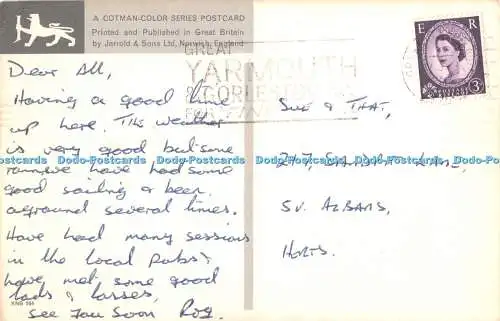 A COTMAN-COLOR SERIES POSTCARD
Printed and Published in Great Britain
by Jarrold & Sons Ltd, Norwich, England
GREAT
YARMOUTH
& GORLESTON
FOR
E R
POSTAGE REVENUE
3D
Dear All,
Having a good time
up here. The weather
is very good but some
rain, we have had some
good sailing & been
aground several times.
Have had many sessions
in the local Pubs &
have met some good
lads & lasses,
see you soon Rog.
KNG 164
Sue & That,
217, Lane,
St. Albans,
Herts.
Dodo-Postcards Dodo-Postcards Dodo-Postcards Dodo-Postcards Dodo-Postcards Dodo-Postcards